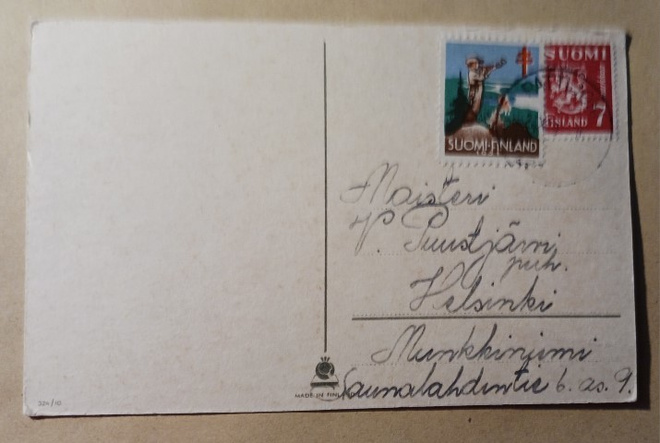 SUOMI
7
FINLAND
SUOMI-FINLAND
Maisteri
V. Puustjärvi
puh.
Helsinki
Munkkiniemi
Saunalahdentie 6. as. 9.
MADE IN FINLAND
324/10